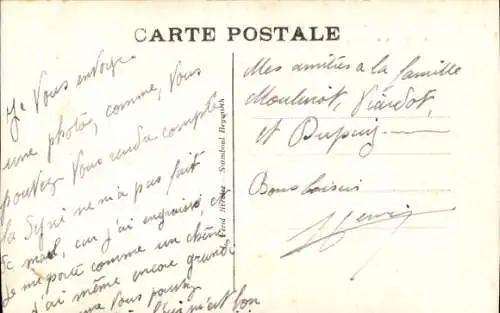 CARTE POSTALE
Je vous envoye
une photo, comme, vous
pouvez vous rendre compte
la Syrie ne m'a pas fait
de mal, car j'ai engraissé,
Je me porte comme un chêne
j'ai même encore grandi
comme vous pouvez
n'est bon
Mes amitiés a la famille
Moulinot, Viardot,
et Dupuy
Bons baisers
Henri